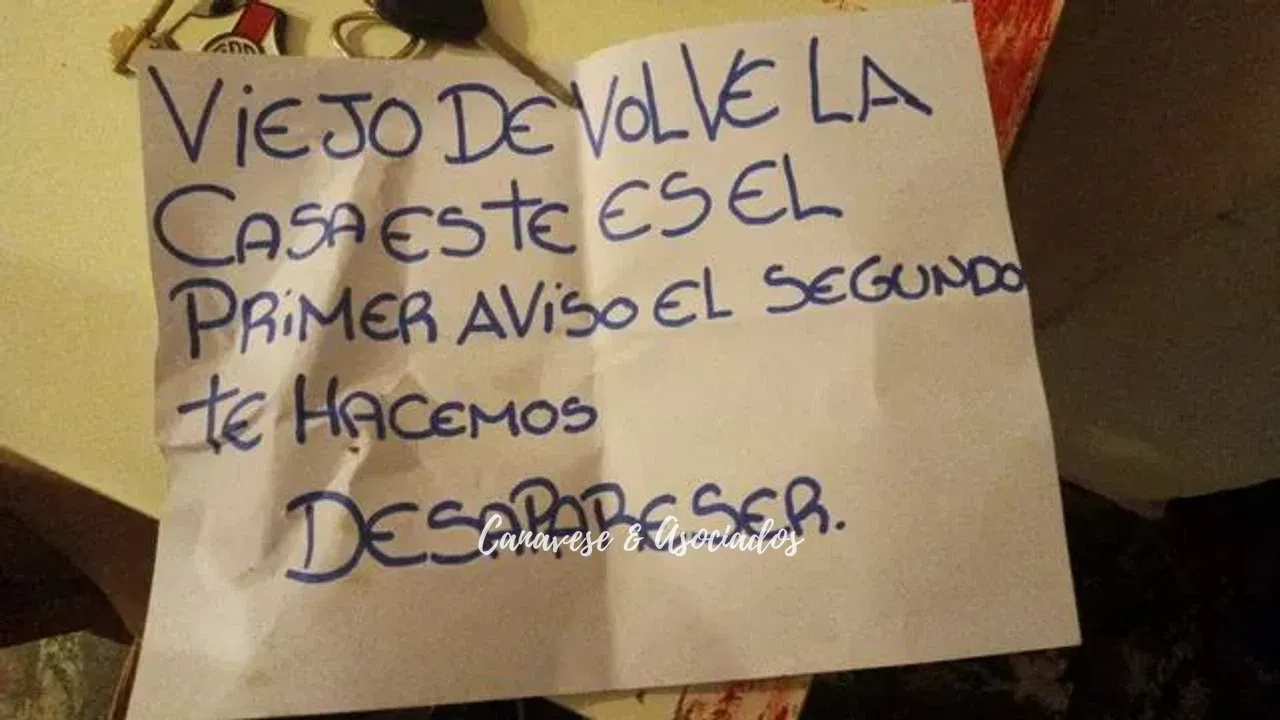 VIEJO DE VOLVE LA
CASA ESTE ES EL
PRIMER AVISO EL SEGUNDO
TE HACEMOS
DESAPARESER.
Canavese & Asociados